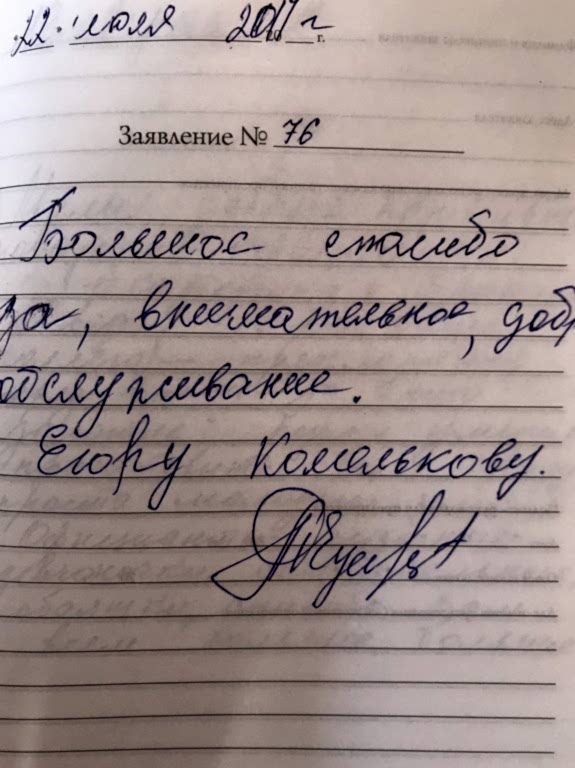 22 июля 2017 г
20 г.
Заявление № 76
Большое спасибо
за, внимательное, доб
обслуживание.
Егору Комелькову.